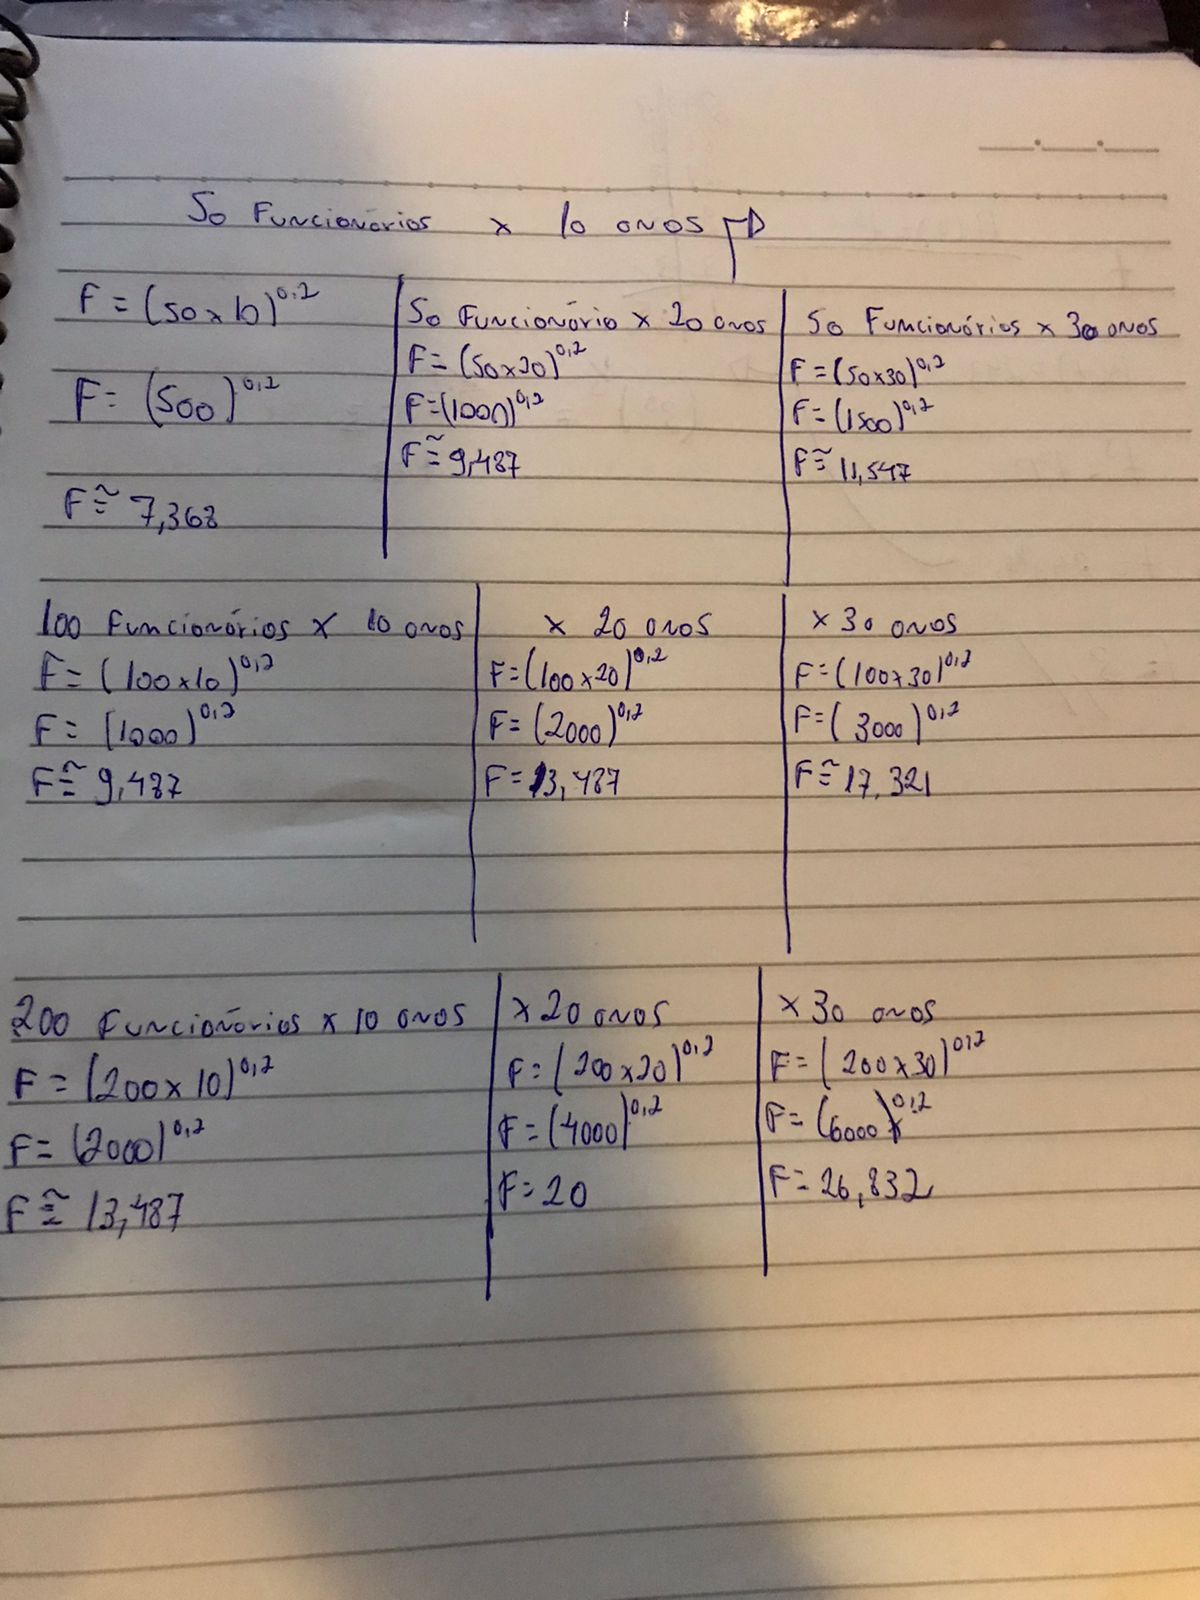 50 Funcionários x 10 anos
F = (50 x 10)^0,2
F = (500)^0,2
F ≅ 7,368
50 Funcionário x 20 anos
F = (50x20)^0,2
F = (1000)^0,2
F ≅ 9,487
50 Funcionários x 30 anos
F = (50x30)^0,2
F = (1500)^0,2
F ≅ 11,547
100 Funcionários x 10 anos
F = (100x10)^0,2
F = (1000)^0,2
F ≅ 9,487
x 20 anos
F = (100x20)^0,2
F = (2000)^0,2
F = 13,487
x 30 anos
F = (100x30)^0,2
F = (3000)^0,2
F ≅ 17,321
200 Funcionários x 10 anos
F = (200x10)^0,2
F = (2000)^0,2
F ≅ 13,487
x 20 anos
F = (200x20)^0,2
F = (4000)^0,2
F = 20
x 30 anos
F = (200x30)^0,2
F = (6000)^0,2
F = 26,832